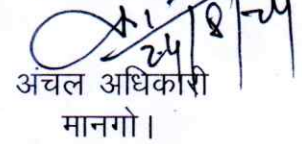 24/8/24
अंचल अधिकारी
मानगो।